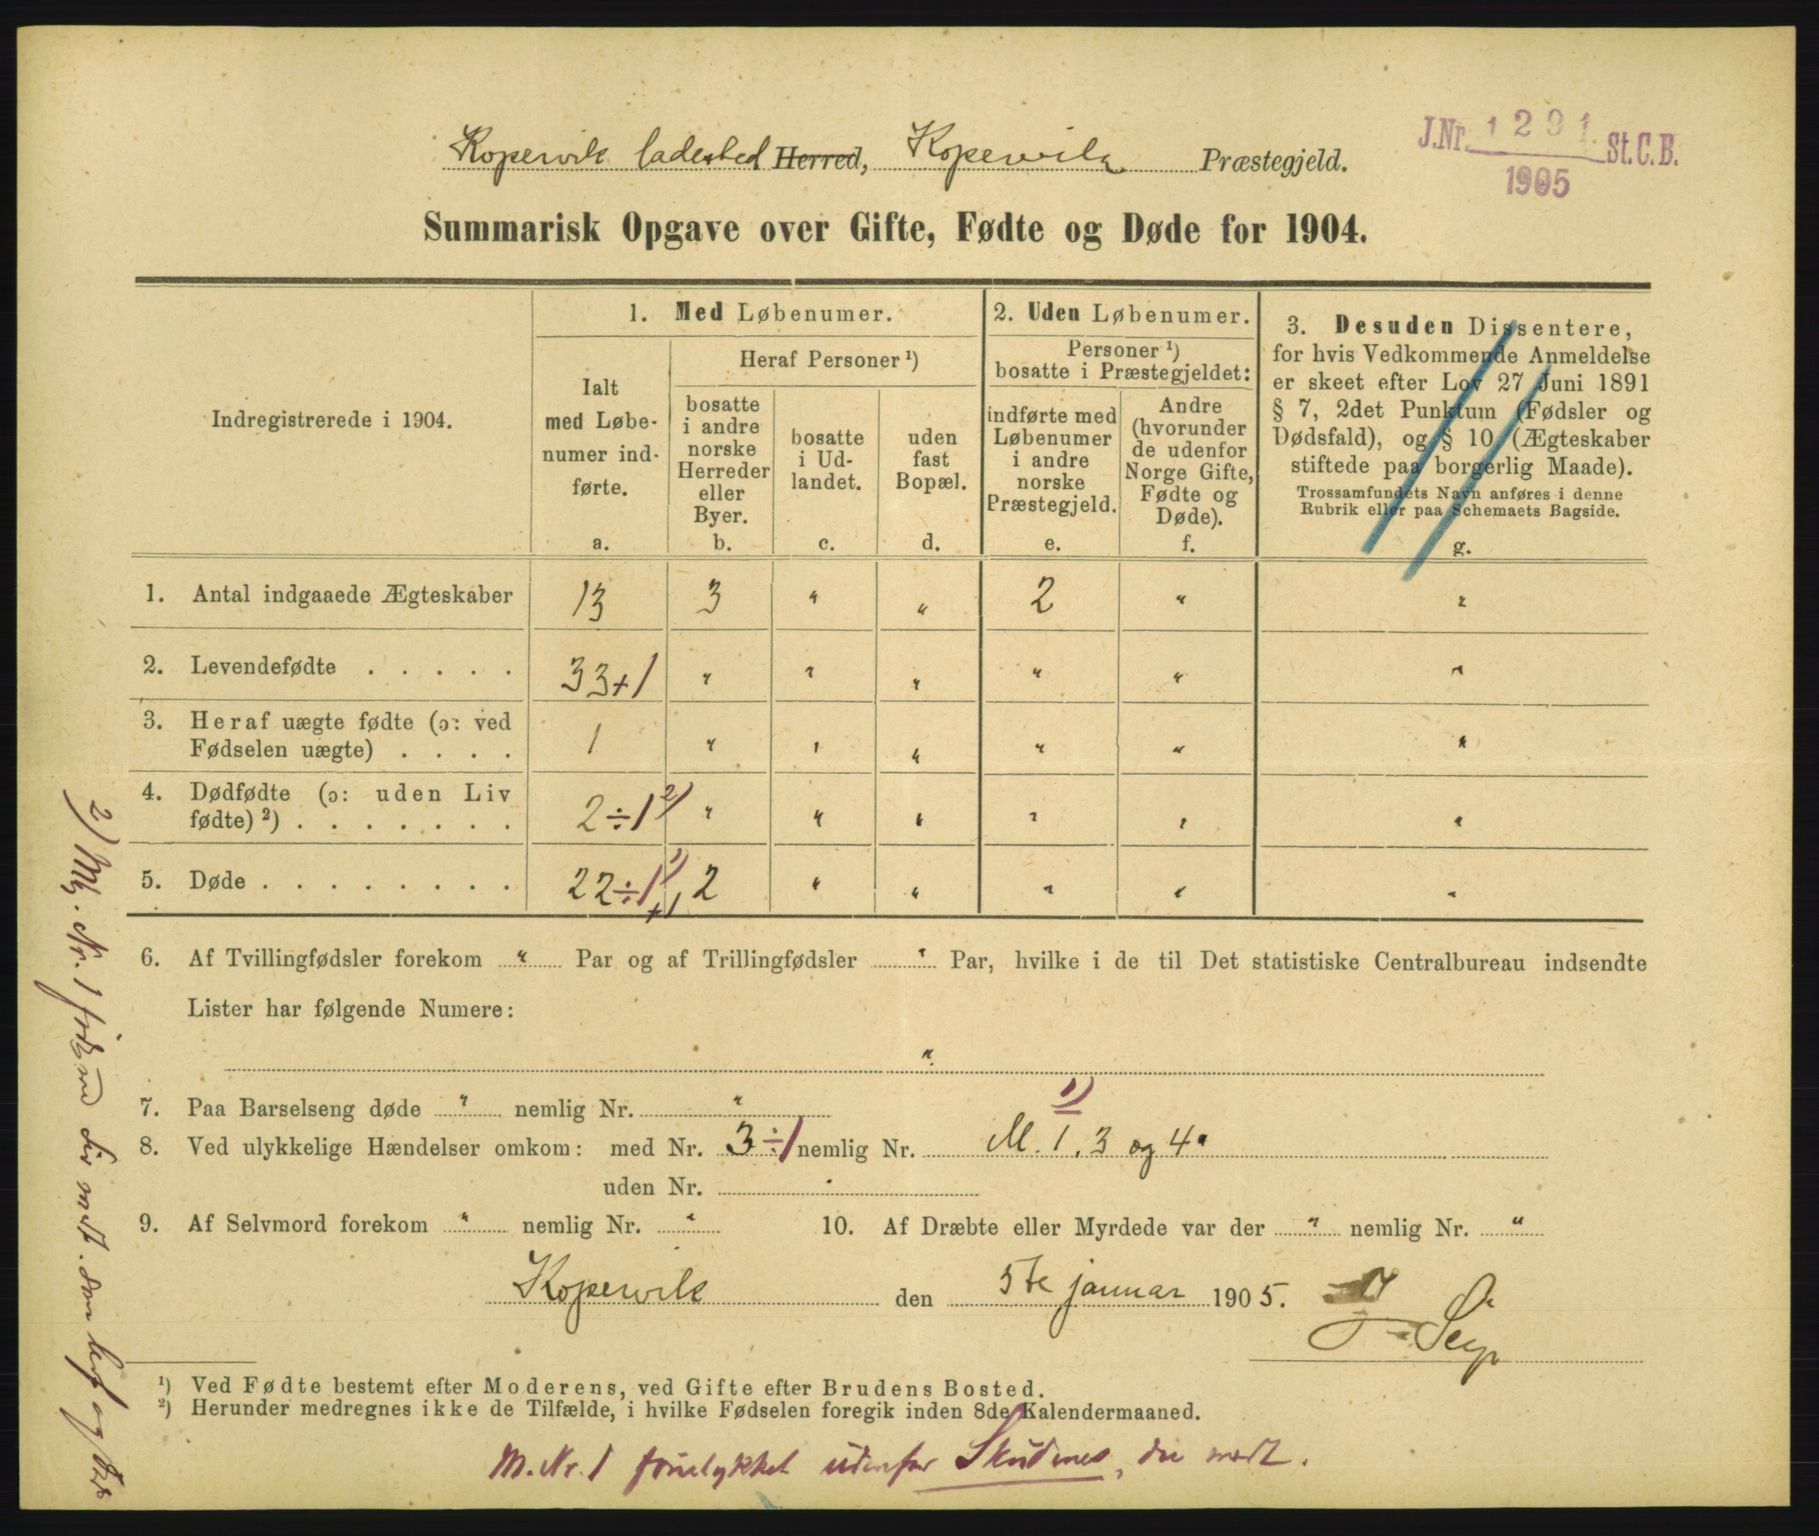 Kopervik ladested Herred, Kopervik Præstegjeld.
J.Nr. 1291. St.C.B.
1905
Summarisk Opgave over Gifte, Fødte og Døde for 1904.
Indregistrerede i 1904.
1. Med Løbenumer.
Ialt med Løbe-
numer ind-
førte.
a.
Heraf Personer ¹)
bosatte
i andre
norske
Herreder
eller
Byer.
b.
bosatte
i Ud-
landet.
c.
uden
fast
Bopæl.
d.
2. Uden Løbenumer.
Personer ¹)
bosatte i Præstegjeldet:
indførte med
Løbenumer
i andre
norske
Præstegjeld.
e.
Andre
(hvorunder
de udenfor
Norge Gifte,
Fødte og
Døde).
f.
3. Desuden Dissentere,
for hvis Vedkommende Anmeldelse
er skeet efter Lov 27 Juni 1891
§ 7, 2det Punktum (Fødsler og
Dødsfald), og § 10 (Ægteskaber
stiftede paa borgerlig Maade).
Trossamfundets Navn anføres i denne
Rubrik eller paa Schemaets Bagside.
g.
1. Antal indgaaede Ægteskaber 13 3 " " 2 " "
2. Levendefødte . . . . . 33+1 " " " " " "
3. Heraf uægte fødte (ɔ: ved
Fødselen uægte) . . . . 1 " " " " " "
4. Dødfødte (ɔ: uden Liv
fødte) ²) . . . . . . . 2÷1 ²) " " " " " "
5. Døde . . . . . . . . 22÷1 ¹) +1 2 " " " " "
6. Af Tvillingfødsler forekom " Par og af Trillingfødsler " Par, hvilke i de til Det statistiske Centralbureau indsendte
Lister har følgende Numere:
"
7. Paa Barselseng døde " nemlig Nr. "
8. Ved ulykkelige Hændelser omkom: med Nr. 3÷1 nemlig Nr. M. 1¹), 3 og 4.
uden Nr. "
9. Af Selvmord forekom " nemlig Nr. " 10. Af Dræbte eller Myrdede var der " nemlig Nr. "
Kopervik den 5te januar 1905.
¹) Ved Fødte bestemt efter Moderens, ved Gifte efter Brudens Bosted.
²) Herunder medregnes ikke de Tilfælde, i hvilke Fødselen foregik inden 8de Kalendermaaned.
M. Nr. 1 forulykket udenfor Skudenes, du medt.
2) Mk. Nr. 1